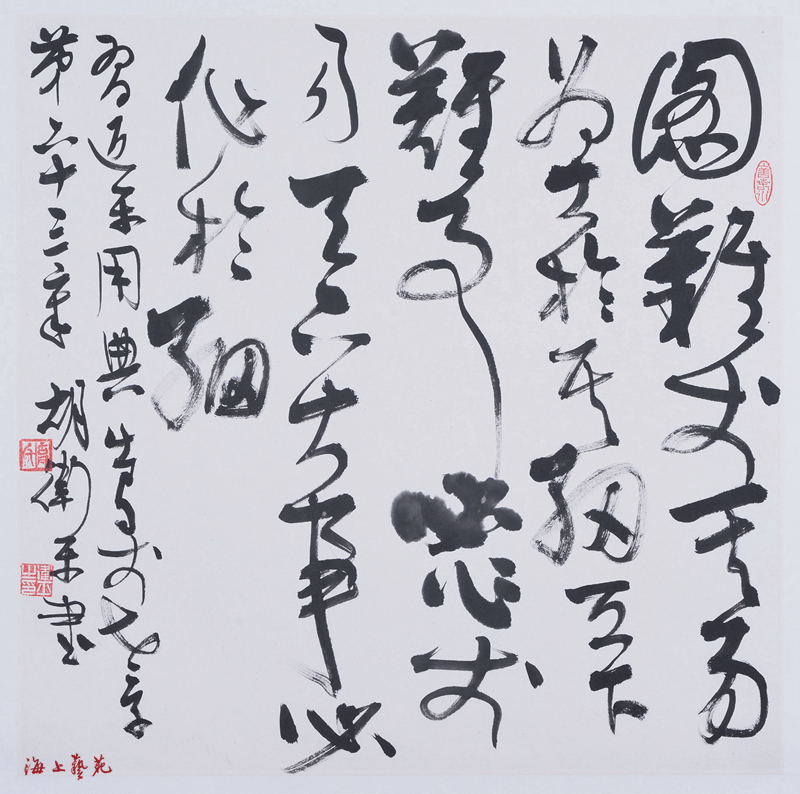 圖難於其易
為大於其細天下
難事必作於
易天下大事必
作於細
習近平用典出自於老子
第六十三章 胡衛平書
海上藝苑